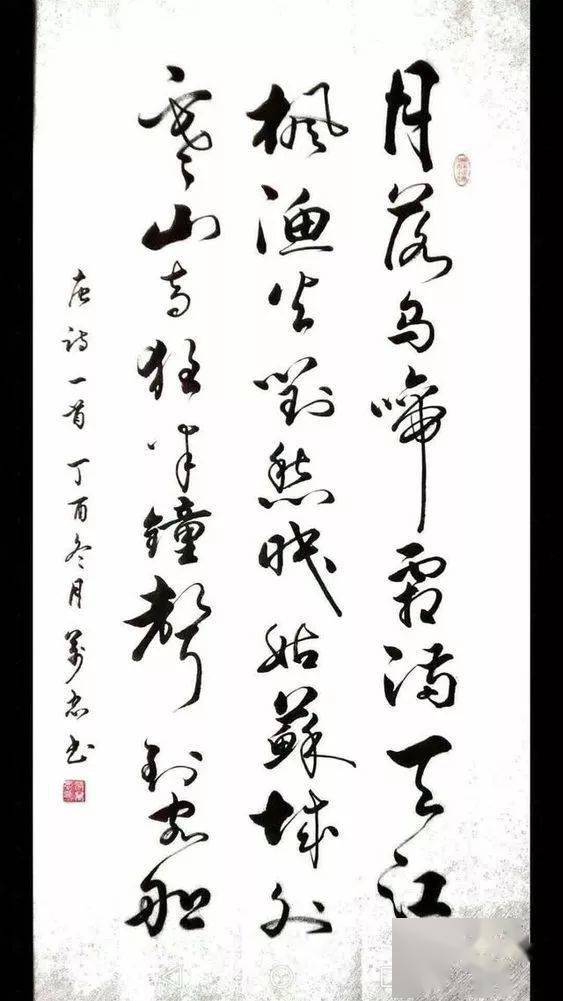 月落乌啼霜满天江
楓渔火對愁眠姑蘇城外
寒山寺夜半鐘聲到客船
唐诗一首丁酉冬月萬忠书